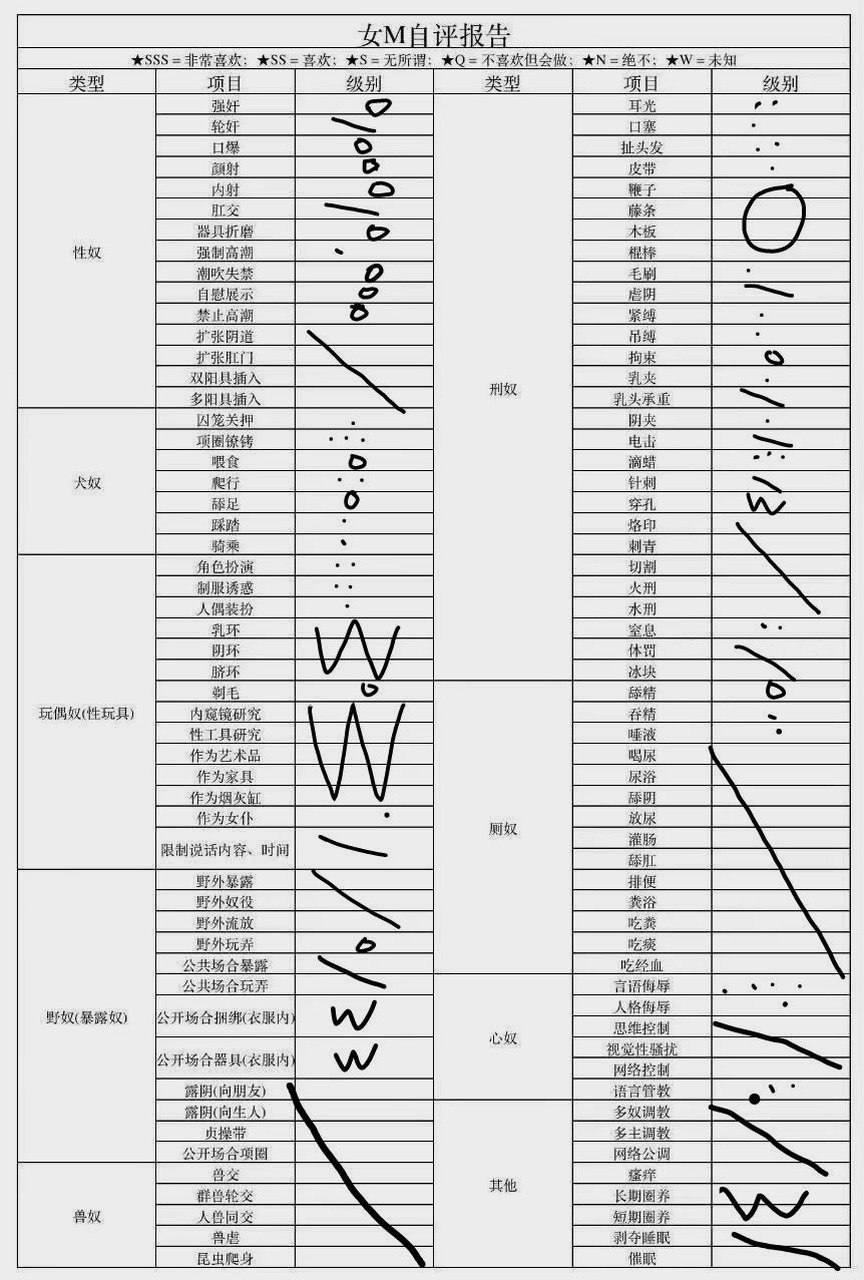 女M自评报告
★SSS = 非常喜欢；★SS = 喜欢；★S = 无所谓；★Q = 不喜欢但会做；★N = 绝不；★W = 未知
类型 项目 级别 类型 项目 级别
性奴
强奸
轮奸
口爆
颜射
内射
肛交
器具折磨
强制高潮
潮吹失禁
自慰展示
禁止高潮
扩张阴道
扩张肛门
双阳具插入
多阳具插入
犬奴
囚笼关押
项圈镣铐
喂食
爬行
舔足
踩踏
骑乘
玩偶奴(性玩具)
角色扮演
制服诱惑
人偶装扮
乳环
阴环 W
脐环
剃毛
内窥镜研究
性工具研究
作为艺术品 W
作为家具
作为烟灰缸
作为女仆
限制说话内容、时间
野奴(暴露奴)
野外暴露
野外奴役
野外流放
野外玩弄
公共场合暴露
公共场合玩弄
公开场合捆绑(衣服内) W
公开场合器具(衣服内) W
露阴(向朋友)
露阴(向生人)
贞操带
公开场合项圈
兽奴
兽交
群兽轮交
人兽同交
兽虐
昆虫爬身
刑奴
耳光
口塞
扯头发
皮带
鞭子
藤条
木板
棍棒
毛刷
虐阴
紧缚
吊缚
拘束
乳夹
乳头承重
阴夹
电击
滴蜡
针刺
穿孔 W
烙印
刺青
切割
火刑
水刑
窒息
体罚
冰块
厕奴
舔精
吞精
唾液
喝尿
尿浴
舔阴
放尿
灌肠
舔肛
排便
粪浴
吃粪
吃痰
吃经血
心奴
言语侮辱
人格侮辱
思维控制
视觉性骚扰
网络控制
语言管教
其他
多奴调教
多主调教
网络公调
瘙痒
长期圈养 W
短期圈养
剥夺睡眠
催眠